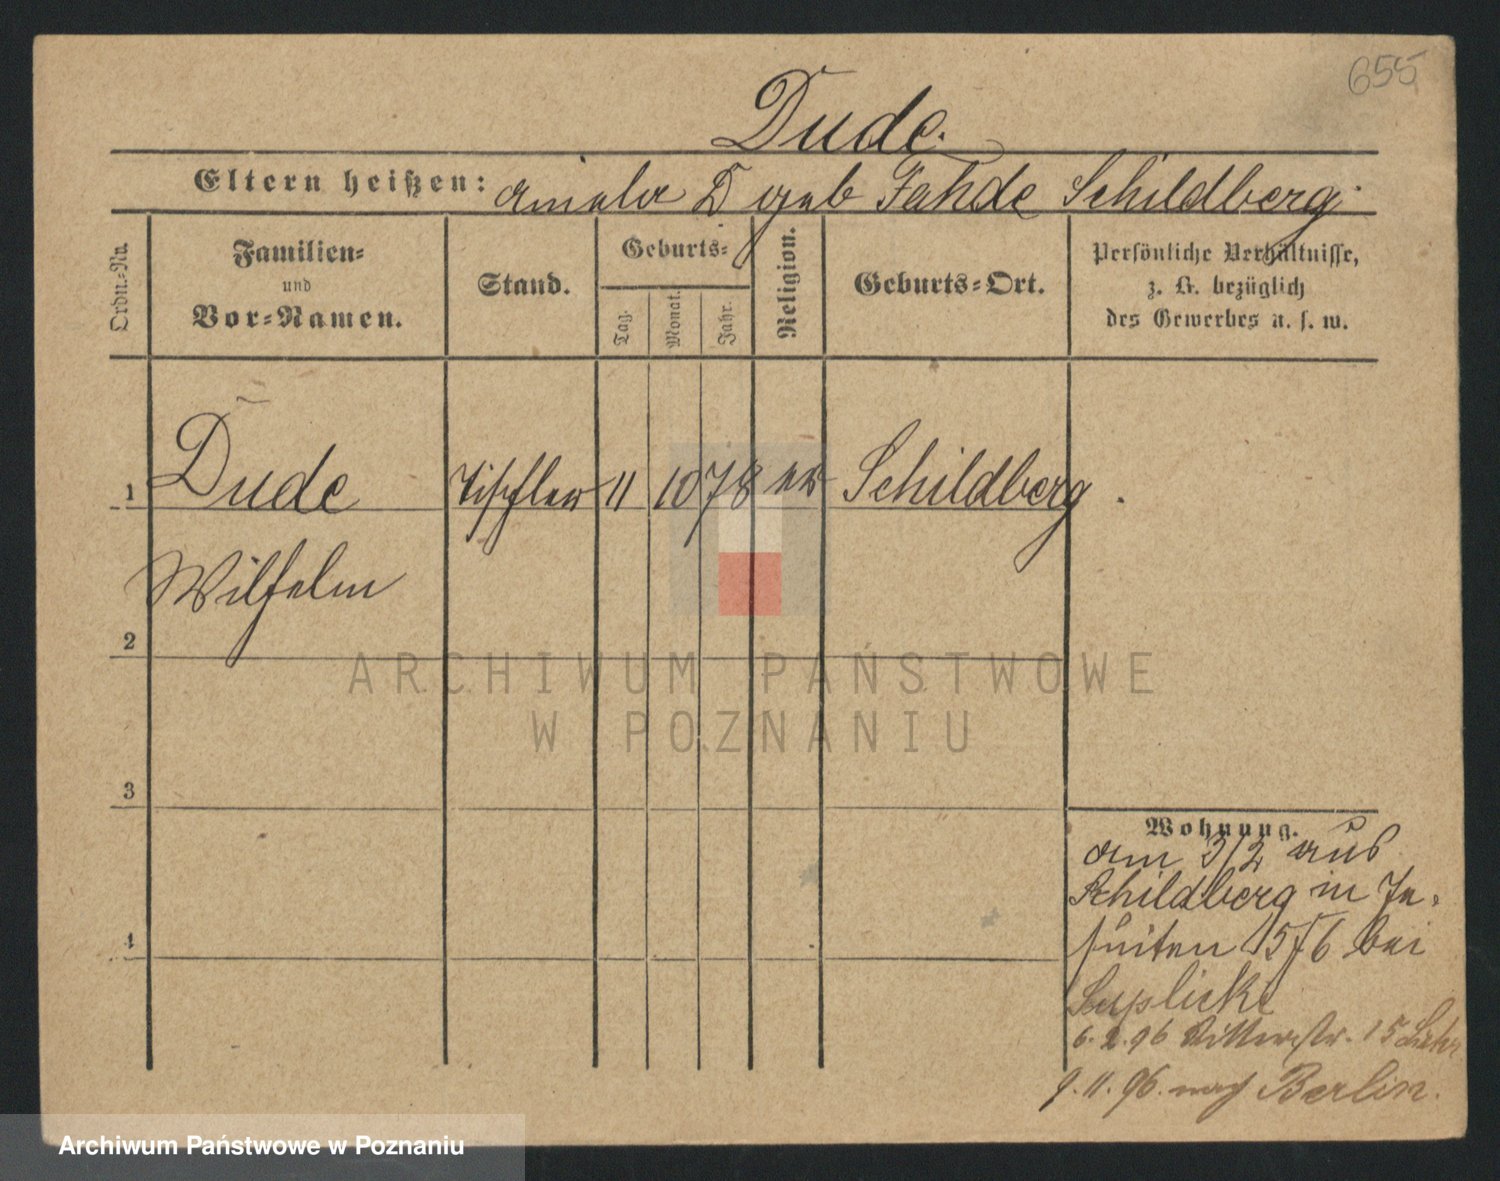 655
Dude.
Eltern heißen: Amalie D geb Fahde Schildberg.
Ordn.-No.
Familien- und Vor-Namen.
Stand.
Geburts-
Tag.
Monat.
Jahr.
Religion.
Geburts-Ort.
Persönliche Verhältnisse,
z. B. bezüglich
des Gewerbes u. s. w.
1 Dude Tischler 11 10 78 ev Schildberg.
Wilhelm
2
3
4
Wohnung.
am 3/2 aus
Schildberg in Je-
suiten 15/6 bei
6. 2. 96 Ritterstr. 15
9. 11. 96. nach Berlin.
ARCHIWUM PAŃSTWOWE
W POZNANIU
Archiwum Państwowe w Poznaniu